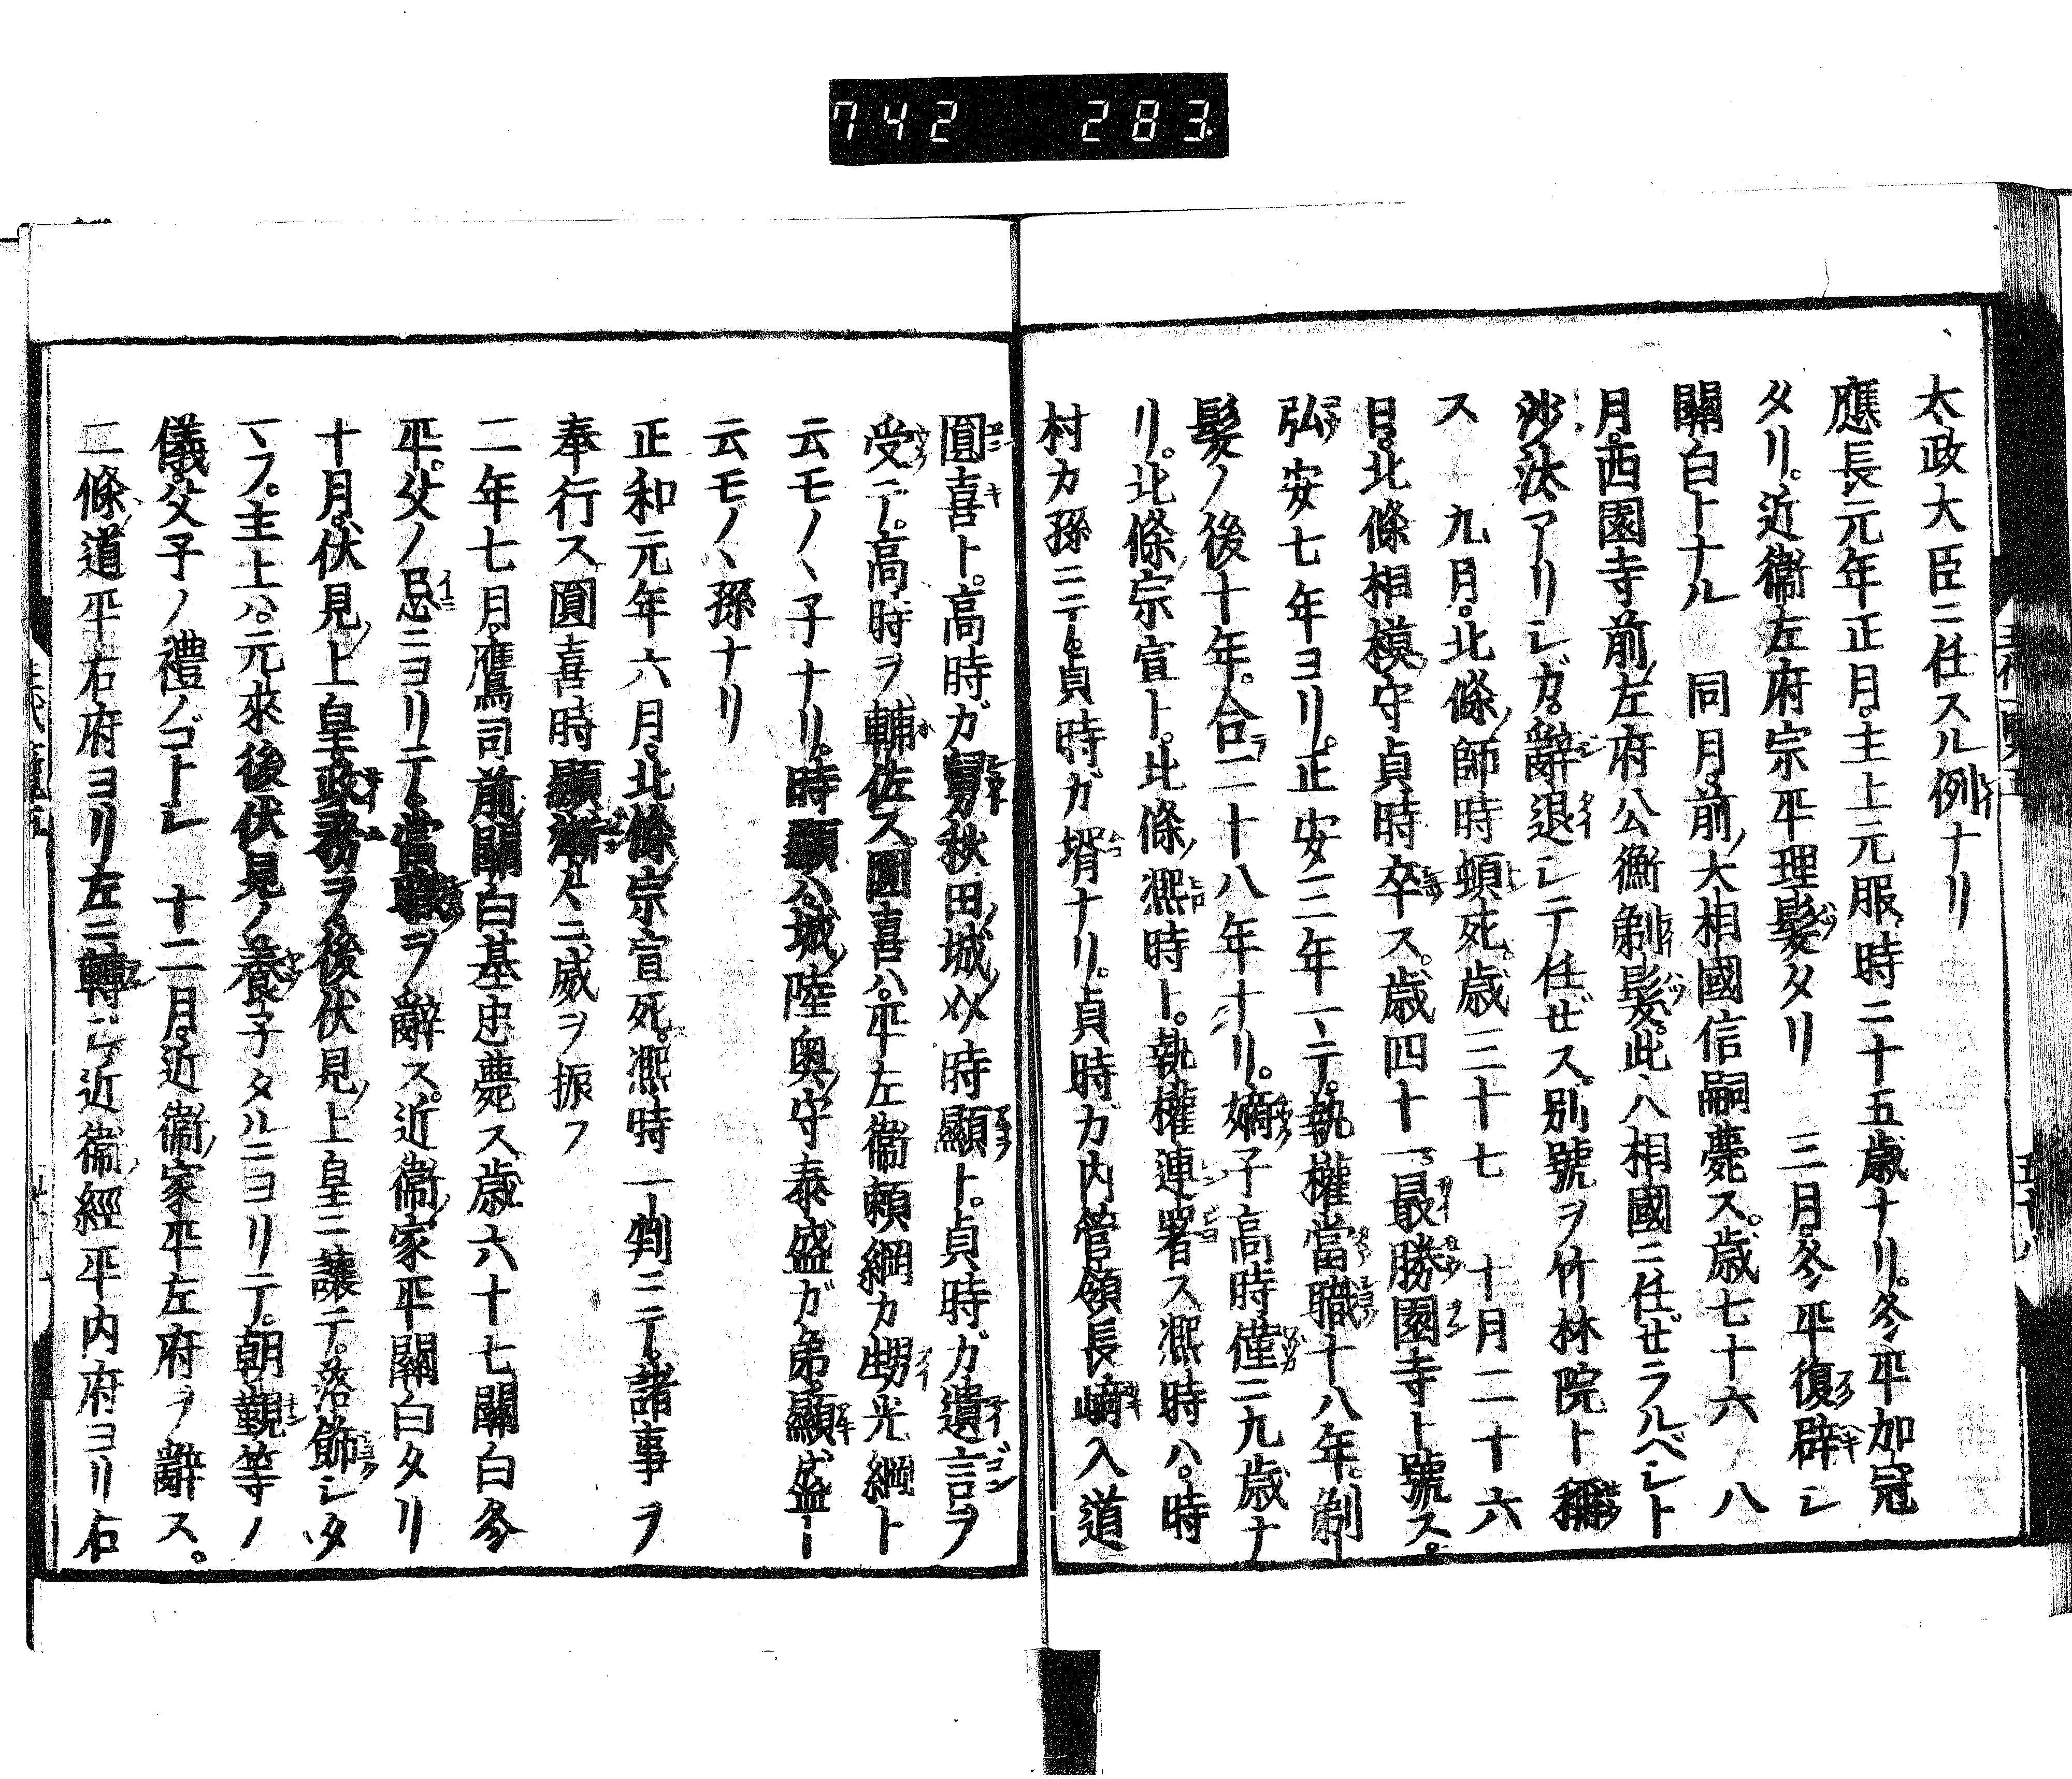 742 283
太政大臣ニ任スル例ナリ
應長元年正月。主上元服。時ニ十五歳ナリ。冬平加冠
タリ。近衞左府宗平理髮タリ 三月。冬平復辟シ
關白トナル 同月。前ノ大相國信嗣薨ス。歳七十六 八
月。西園寺前ノ左府公衡剃髮。此人相國ニ任ゼラルベシト
沙汰アリシガ。辭退シテ任ゼス。別號ヲ竹林院ト稱
ス 九月。北條ノ師時頓死。歳三十七 十月二十六
日。北條相模ノ守貞時卒ス。歳四十一。最勝園寺ト號ス。
弘安七年ヨリ。正安三年ニテ。執權當職十八年。剃
髮ノ後十年。合二十八年ナリ。嫡子高時僅ニ九歳ナ
リ。北條ノ宗宣ト。北條ノ凞時ト。執權連署ス凞時ハ。時
村カ孫ニテ。貞時ガ壻ナリ。貞時カ内管領長崎入道
圓喜ト。高時ガ舅秋田ノ城ノ介時顯ト。貞時ガ遺言ヲ
受テ。高時ヲ輔佐ス圓喜ハ。平左衞賴綱カ甥光綱ト
云モノヽ子ナリ。時顯ハ。城ノ陸奥ノ守泰盛ガ弟顯盛ト
云モノヽ孫ナリ
正和元年六月。北條ノ宗宣死。凞時一判ニテ。諸事ヲ
奉行ス圓喜時顯漸々ニ威ヲ振フ
二年七月。鷹司前ノ關白基忠薨ス歳六十七關白冬
平。父ノ忌ニヨリテ。當職ヲ辭ス。近衞ノ家平關白タリ
十月。伏見ノ上皇政務ヲ後伏見ノ上皇ニ讓テ。落飾シタ
マフ。主上ハ。元來後伏見ノ養子タルニヨリテ。朝覲等ノ
儀。父子ノ禮ノゴトシ 十二月。近衞ノ家平左府ヲ辭ス。
二條ノ道平右府ヨリ左ニ轉ジ近衞ノ經平内府ヨリ右